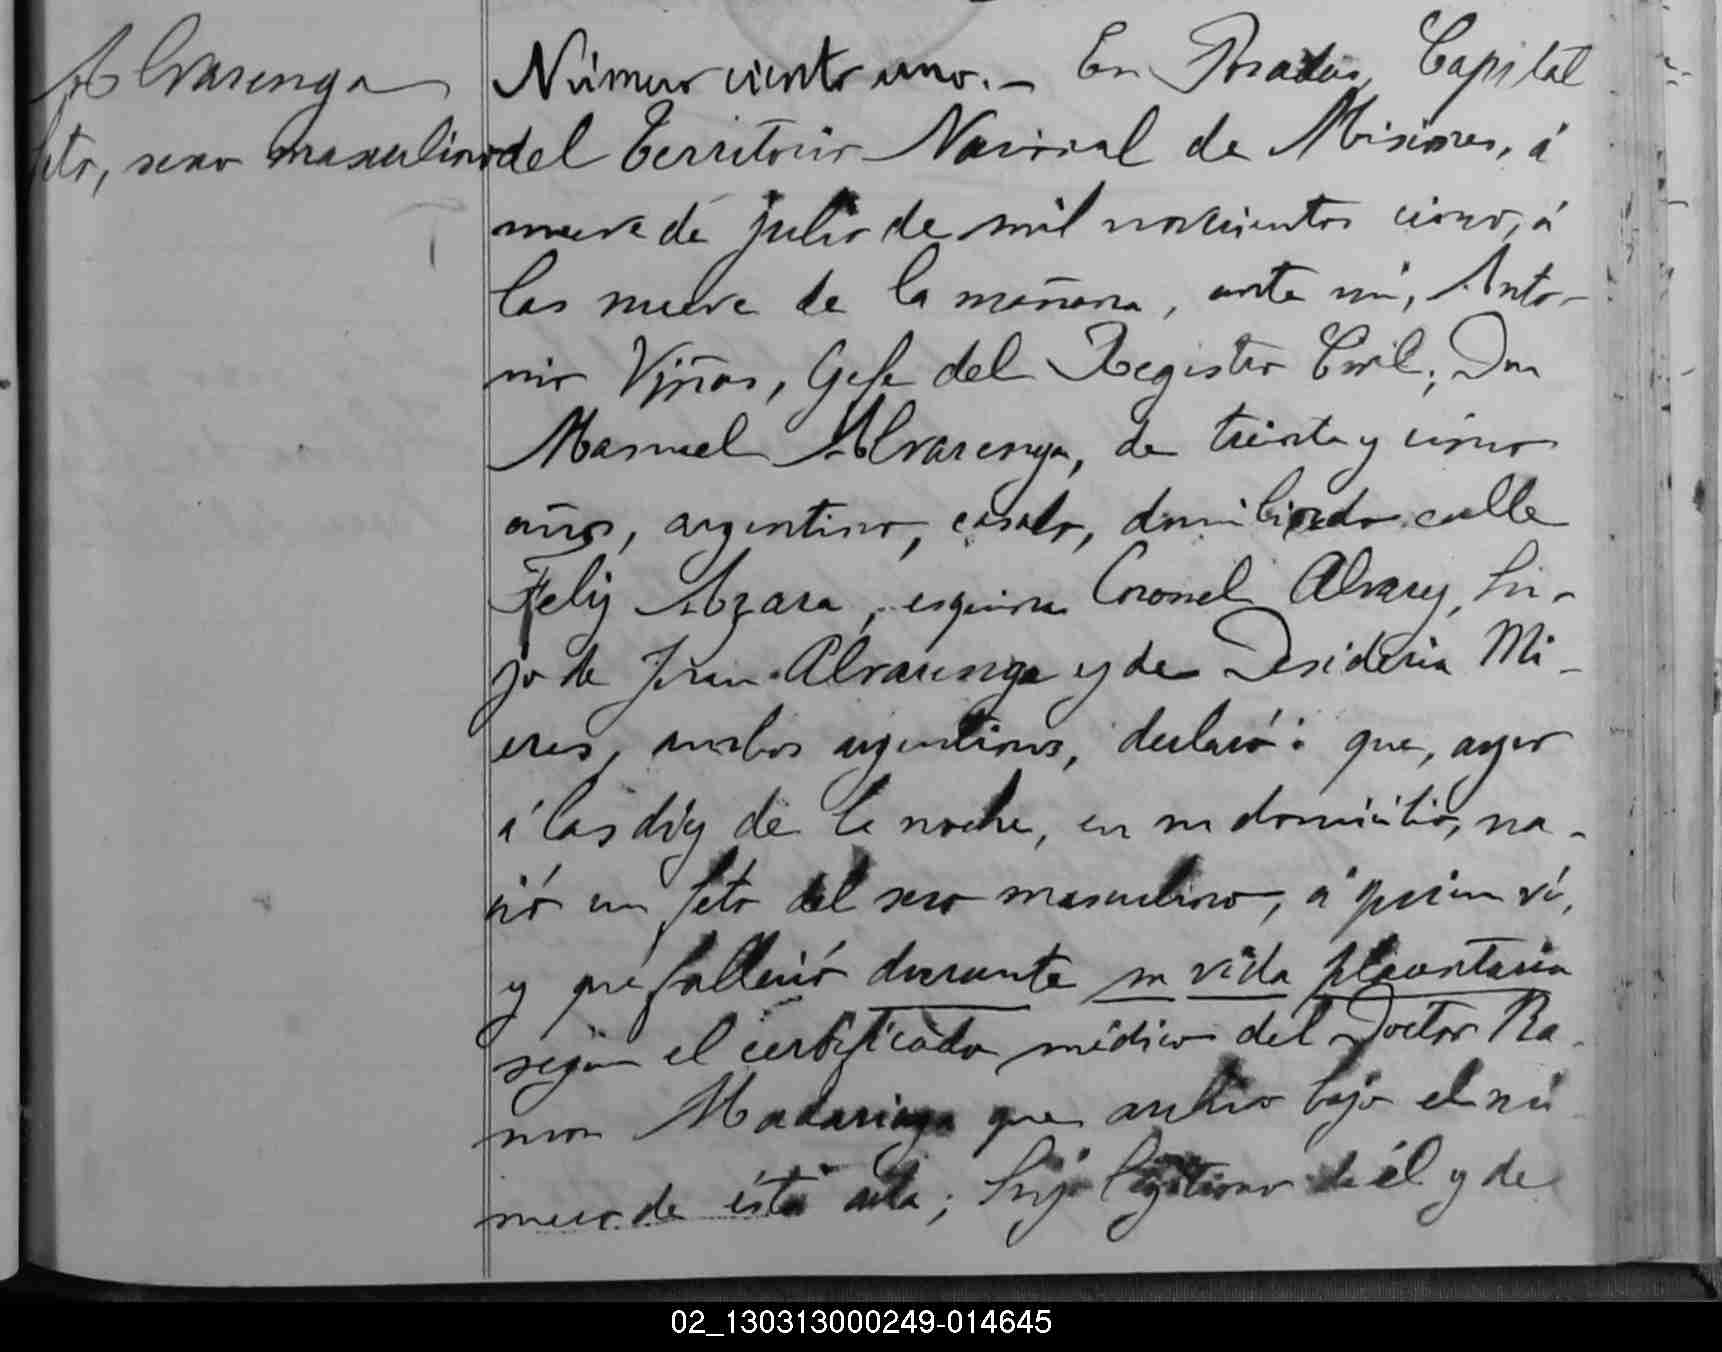 Alvarenga
feto, sexo masculino
Número ciento uno.- En Posadas, Capital
del Territorio Nacional de Misiones, á
nueve de julio de mil novecientos cinco, á
las nueve de la mañana, ante mí, Anto-
nio Viñas, Gefe del Registro Civil; Don
Manuel Alvarenga, de treinta y cinco
años, argentino, casado, domiciliado calle
Feliz Azara, esquina Coronel Alvarez, hi-
jo de Juan Alvarenga y de Desideria Mi-
eres, ambos argentinos, declaró: que, ayer
á las diez de la noche, en su domicilio, na-
ció un feto del sexo masculino, á quien ví,
y que falleció durante su vida placentaria
según el certificado médico del Doctor Ra-
mon Madariaga que archivo bajo el nú
mero de ésta acta; hijo legítimo de él y de
02_130313000249-014645